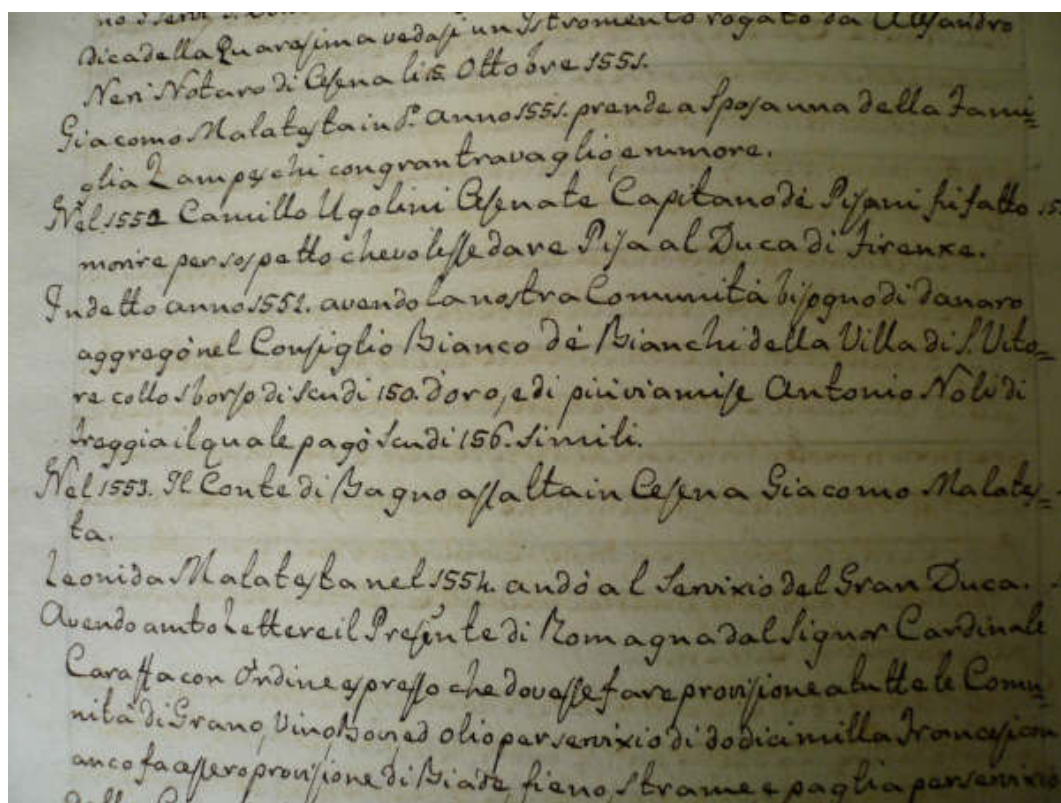 dica della Quaresima vedasi un Istromento rogato da Alesandro
Neri Notaro di Cesena li 15. Ottobre 1551.
Giacomo Malatesta in d.º anno 1551. prende a sposa una della Fami=
glia Zampeschi con gran travaglio, e rumore.
Nel 1552 Camillo Ugolini Cesenate Capitano dè Pisani fù fatto
morire per sospetto che volesse dare Pisa al Duca di Firenze.
In detto anno 1552. avendo la nostra Comunità bisogno di danaro
aggregò nel Consiglio Bianco dè Bianchi della Villa di S. Vito=
re collo sborso di scudi 150. d'oro, e di più vi amise Antonio Noli di
Ireggia il quale pagò Scudi 156. simili.
Nel 1553. Il Conte di Bagno assalta in Cesena Giacomo Malates=
ta.
Leonida Malatesta nel 1554. andò al Servizio del Gran Duca.
Avendo auto Lettere il Presinte di Romagna dal Signor Cardinale
Caraffa con Ordine espresso che dovesse fare provisione a tutte le Comu=
nità di Grano, Vino, Bovi, ed olio per servizio di dodici milla Francesi con
anco facessero provisione di Biade, fieno, strame e paglia per servizio